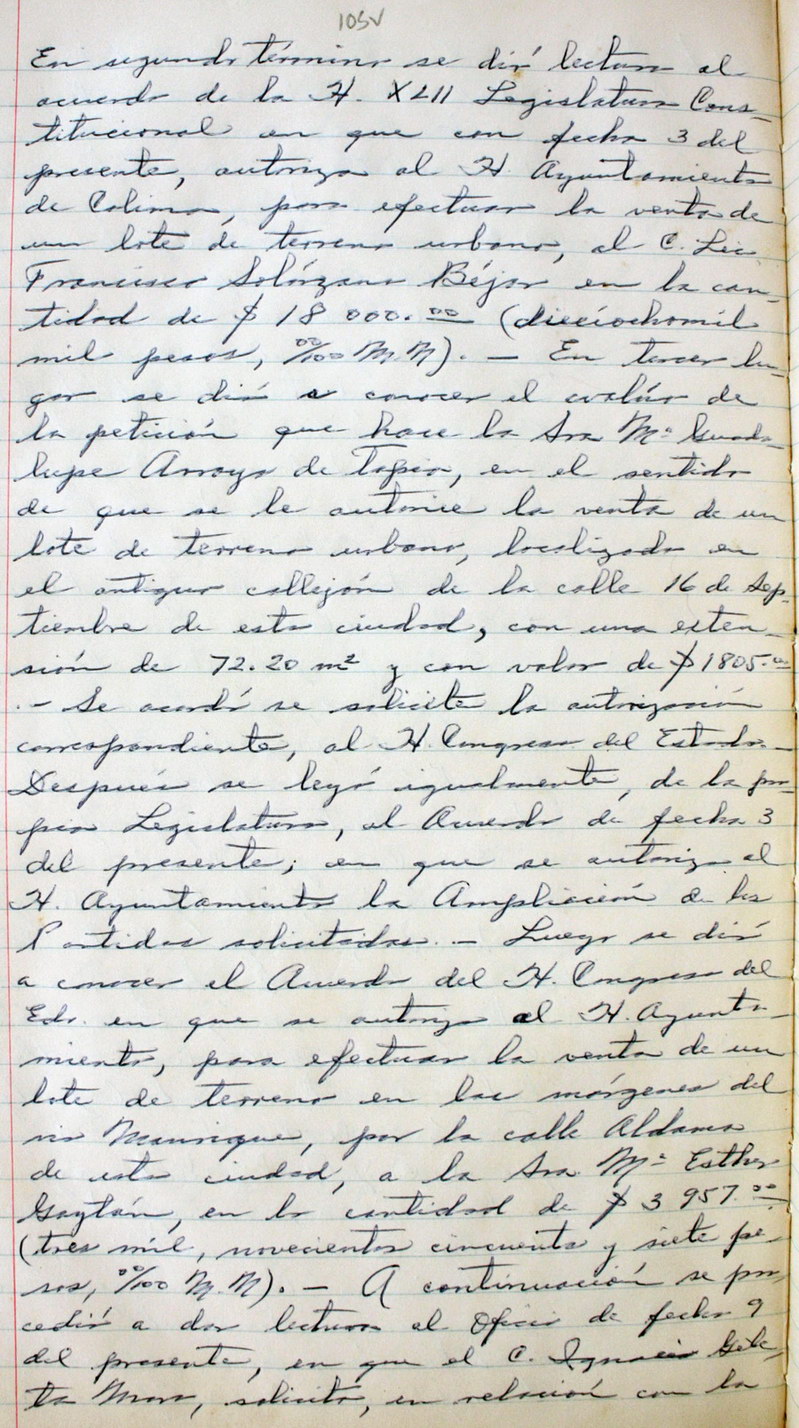 105v
En segundo término se dió lectura al
acuerdo de la H. XLII Legislatura Cons-
titucional en que con fecha 3 del
presente, autoriza al H. Ayuntamiento
de Colima, para efectuar la venta de
un lote de terreno urbano, al C. Lic.
Francisco Solórzano Béjar en la can-
tidad de $ 18 000.00 (dieciochomil
mil pesos, 00/100 M.N). — En tercer lu-
gar se dió a conocer el avalúo de
la petición que hace la Sra Mª Guada-
lupe Arroyo de Tapia, en el sentido
de que se le autorice la venta de un
lote de terreno urbano, localizado en
el antiguo callejón de la calle 16 de Sep-
tiembre de esta ciudad, con una exten-
sión de 72.20 m² y con valor de $ 1805.00
.- Se acordó se solicite la autorización
correspondiente, al H. Congreso del Estado.-
Después se leyó igualmente, de la pro-
pia Legislatura, el Acuerdo de fecha 3
del presente; en que se autoriza al
H. Ayuntamiento la Ampliación de las
Partidas solicitadas. — Luego se dió
a conocer el Acuerdo del H. Congreso del
Edo. en que se autoriza al H. Ayunta-
miento, para efectuar la venta de un
lote de terreno en las márgenes del
río Manrique, por la calle Aldama
de esta ciudad, a la Sra Mª Esther
Gaytán, en la cantidad de $ 3 957.00
(tres mil, novecientos cincuenta y siete pe-
sos, 00/100 M.N). — A continuación se pro-
cedió a dar lectura al Oficio de fecha 9
del presente, en que el C. Ignacio
Mora, solicita, en relación con la